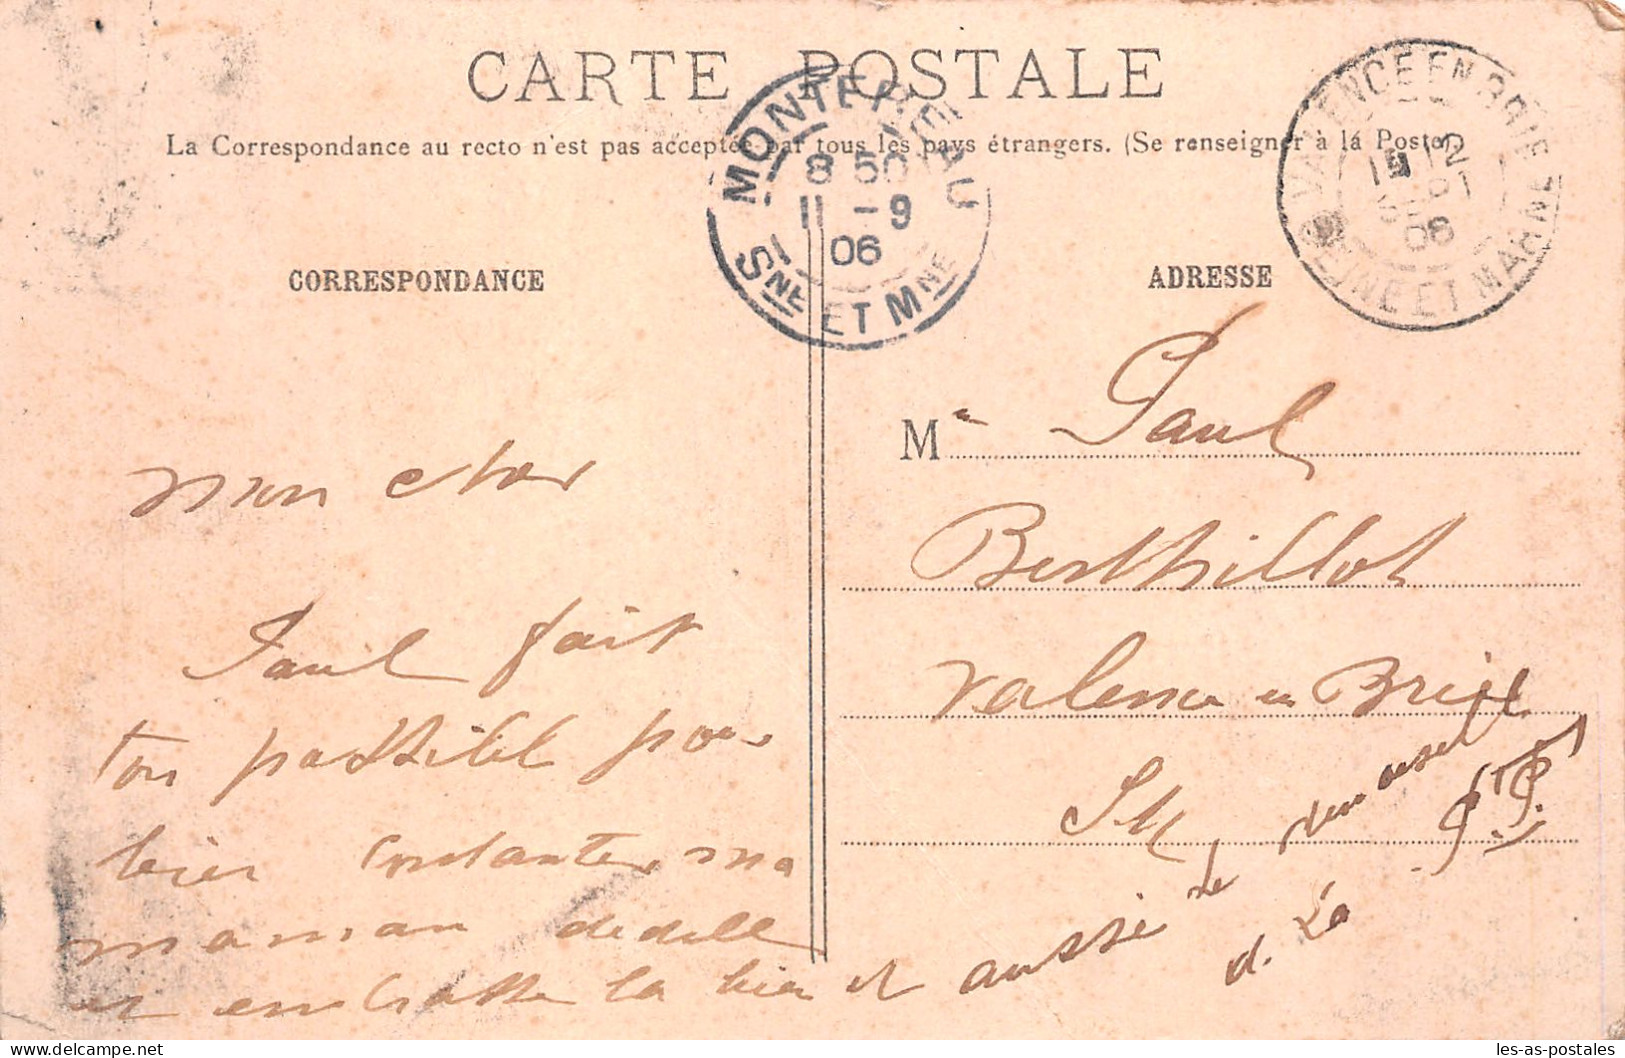 CARTE POSTALE
La Correspondance au recto n'est pas acceptée par tous les pays étrangers. (Se renseigner à la Poste)
MONTEREAU
8 50
11 -9
06
SNE ET MNE
VALENCE EN BRIE
12
06
SEINE ET MARNE
CORRESPONDANCE
ADRESSE
Mr Paul
Berthillot
Valence en Brie
S M
mon cher
Paul fait
ton possible pour
bien contenter ma
maman
et embrasse la bien et aussi
d. La
les-as-postales